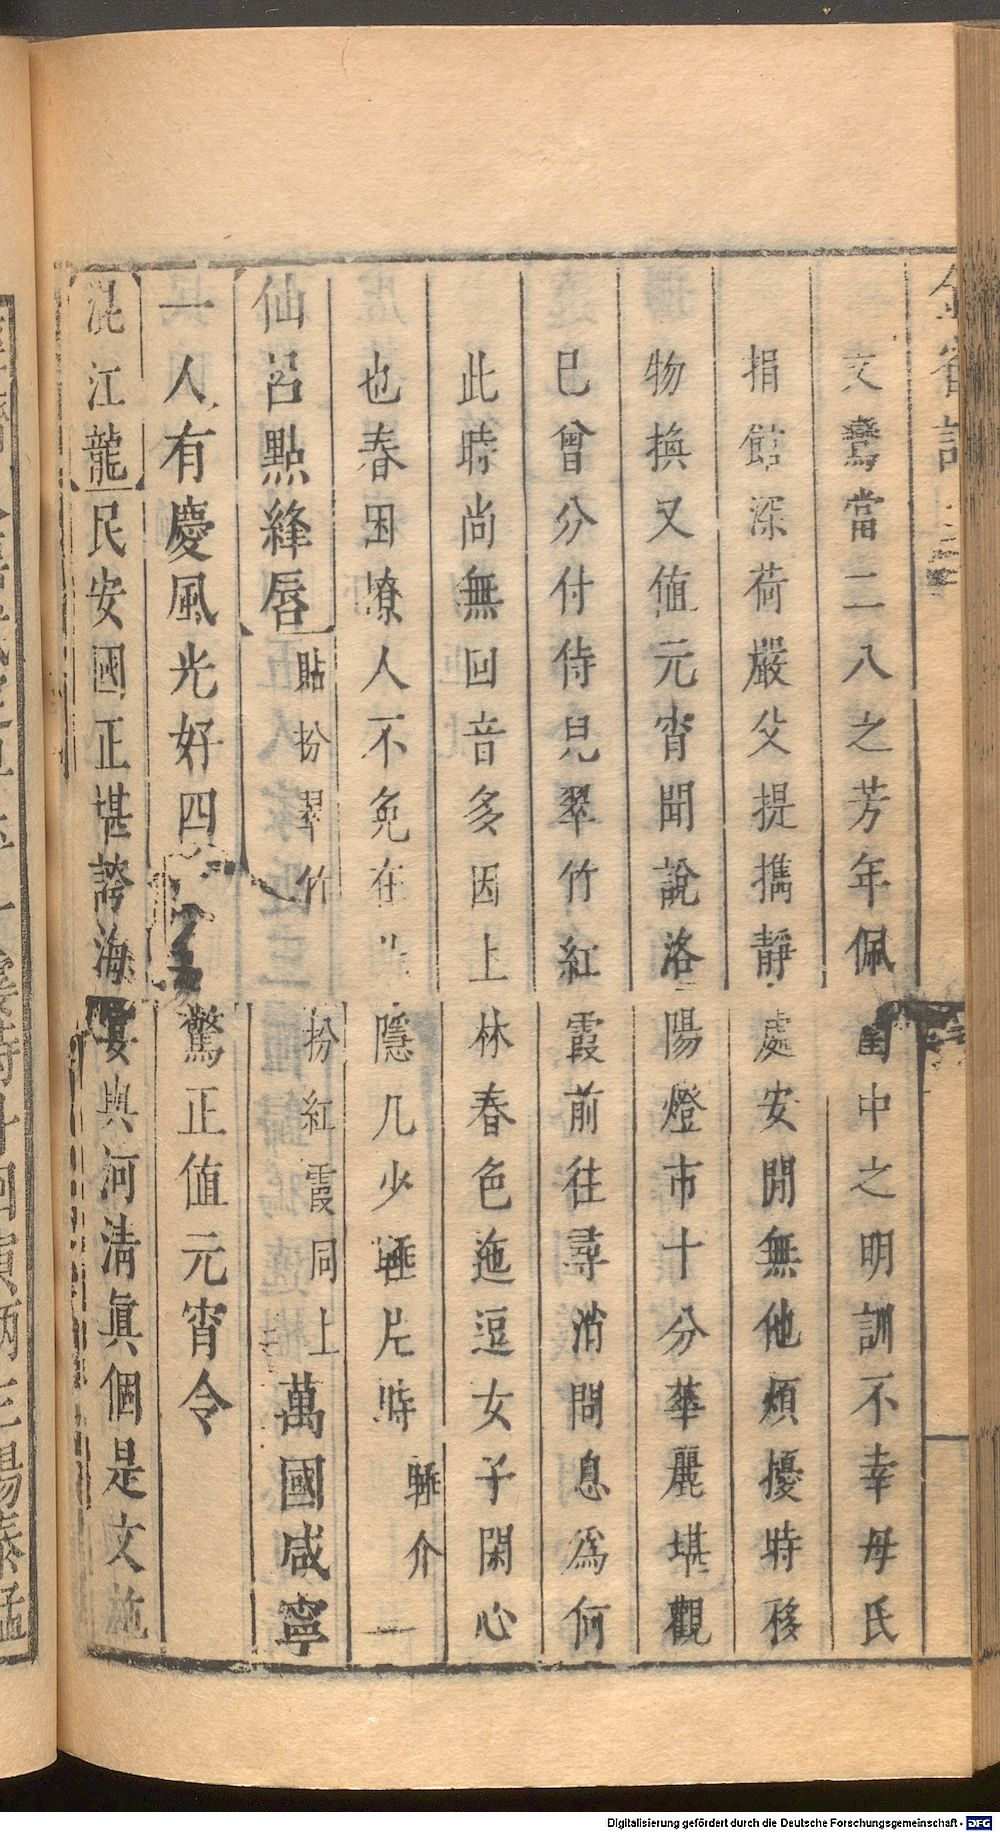 文鸞當二八之芳年佩中之明訓不幸母氏
捐館深荷嚴父提攜靜處安閒無他煩擾時移
物換又值元宵聞說洛陽燈市十分華麗堪觀
已曾分付侍兒翠竹紅霞前往尋消問息爲何
此時尚無回音多因上林春色迤逗女子閑心
也春困撩人不免在隱几少睡片時睡介
仙呂點絳唇貼扮翠竹扮紅霞同上萬國咸寧
一人有慶風光好四驚正值元宵令
混江龍民安國正堪誇海宴與河清眞個是文施
Digitalisierung gefördert durch die Deutsche Forschungsgemeinschaft - DFG